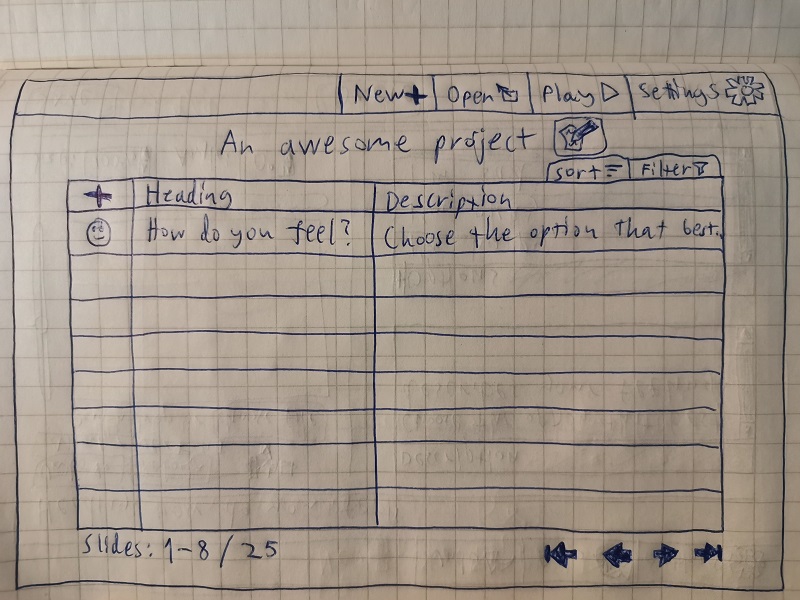 New Open Play Settings
An awesome project
Sort Filter
Heading Description
How do you feel? Choose the option that best..
Slides: 1-8 / 25